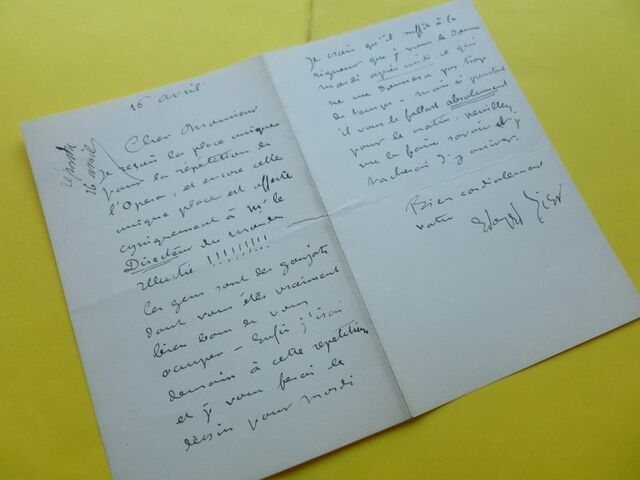 16 avril
répondu
26 avril
Cher Monsieur
Je reçois la place unique
pour la répétition de
l'Opera, et encore cette
unique place est offerte
cyniquement à Mr le
Directeur du monde
illustré !!!!!!!!!
Ces gens sont des goujats
dont vous êtes vraiment
bien bon de vous
occuper - Enfin j'irai
demain à cette répétition
et j'y vous ferai le
dessin pour mardi
Je sais qu'il suffit à la
rigueur que je vous le donne
mardi après midi ce qui
ne me donnera pas trop
de temps - mais si pourtant
il vous le fallait absolument
pour le matin, veuillez
me le faire savoir et je
tacherai d'y arriver.
Bien cordialement
votre